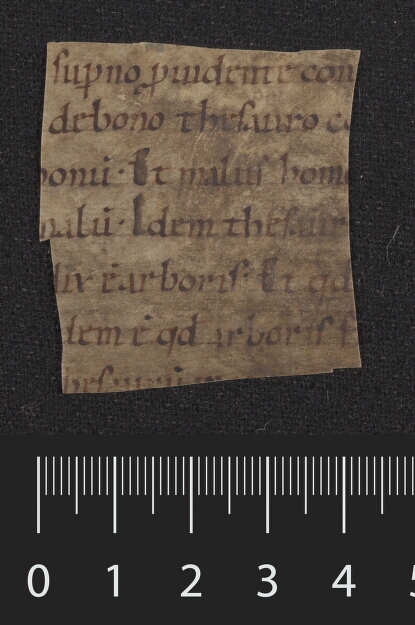 sup̱no puident͛ con
de bono thesauro c
bonū · Et malus hom
malū · Idem thesaur
dix ē arboris · Et qd
dem ē qd arboris f
0 1 2 3 4 5